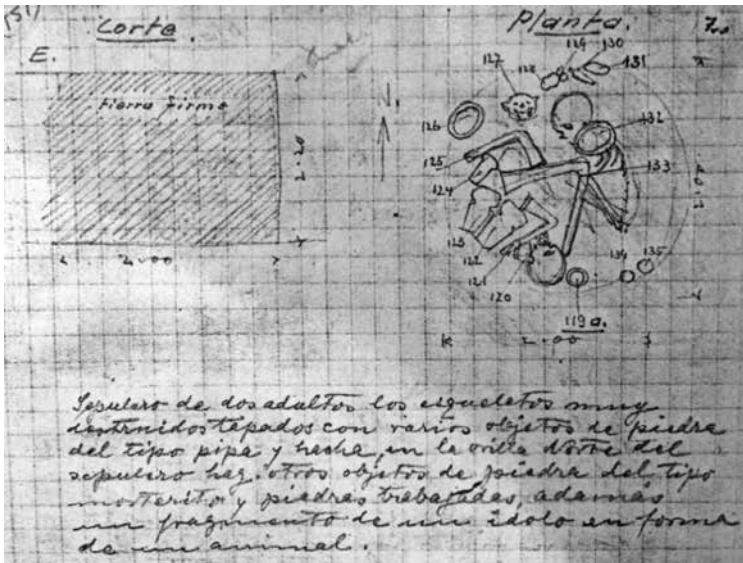 (51)
Corte.
Planta.
7..
E.
129 130
131
127
128
tierra firme
N.
126
132
125
2.20
133
124
123
122
134
135
121
120
119 a.
2.00
2.00
Sepulcro de dos adultos los esqueletos muy
destruidos tapados con varios objetos de piedra
del tipo pipa y hacha, en la orilla Norte del
sepulcro hay otros objetos de piedra del tipo
morterito y piedras trabajadas, además
un fragmento de un idolo en forma
de un animal.